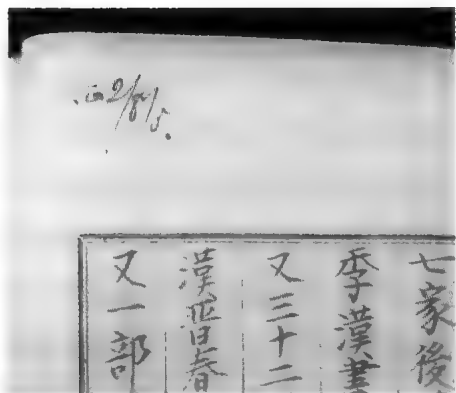 七家後
季漢書
又三十二
漢晉春
又一部